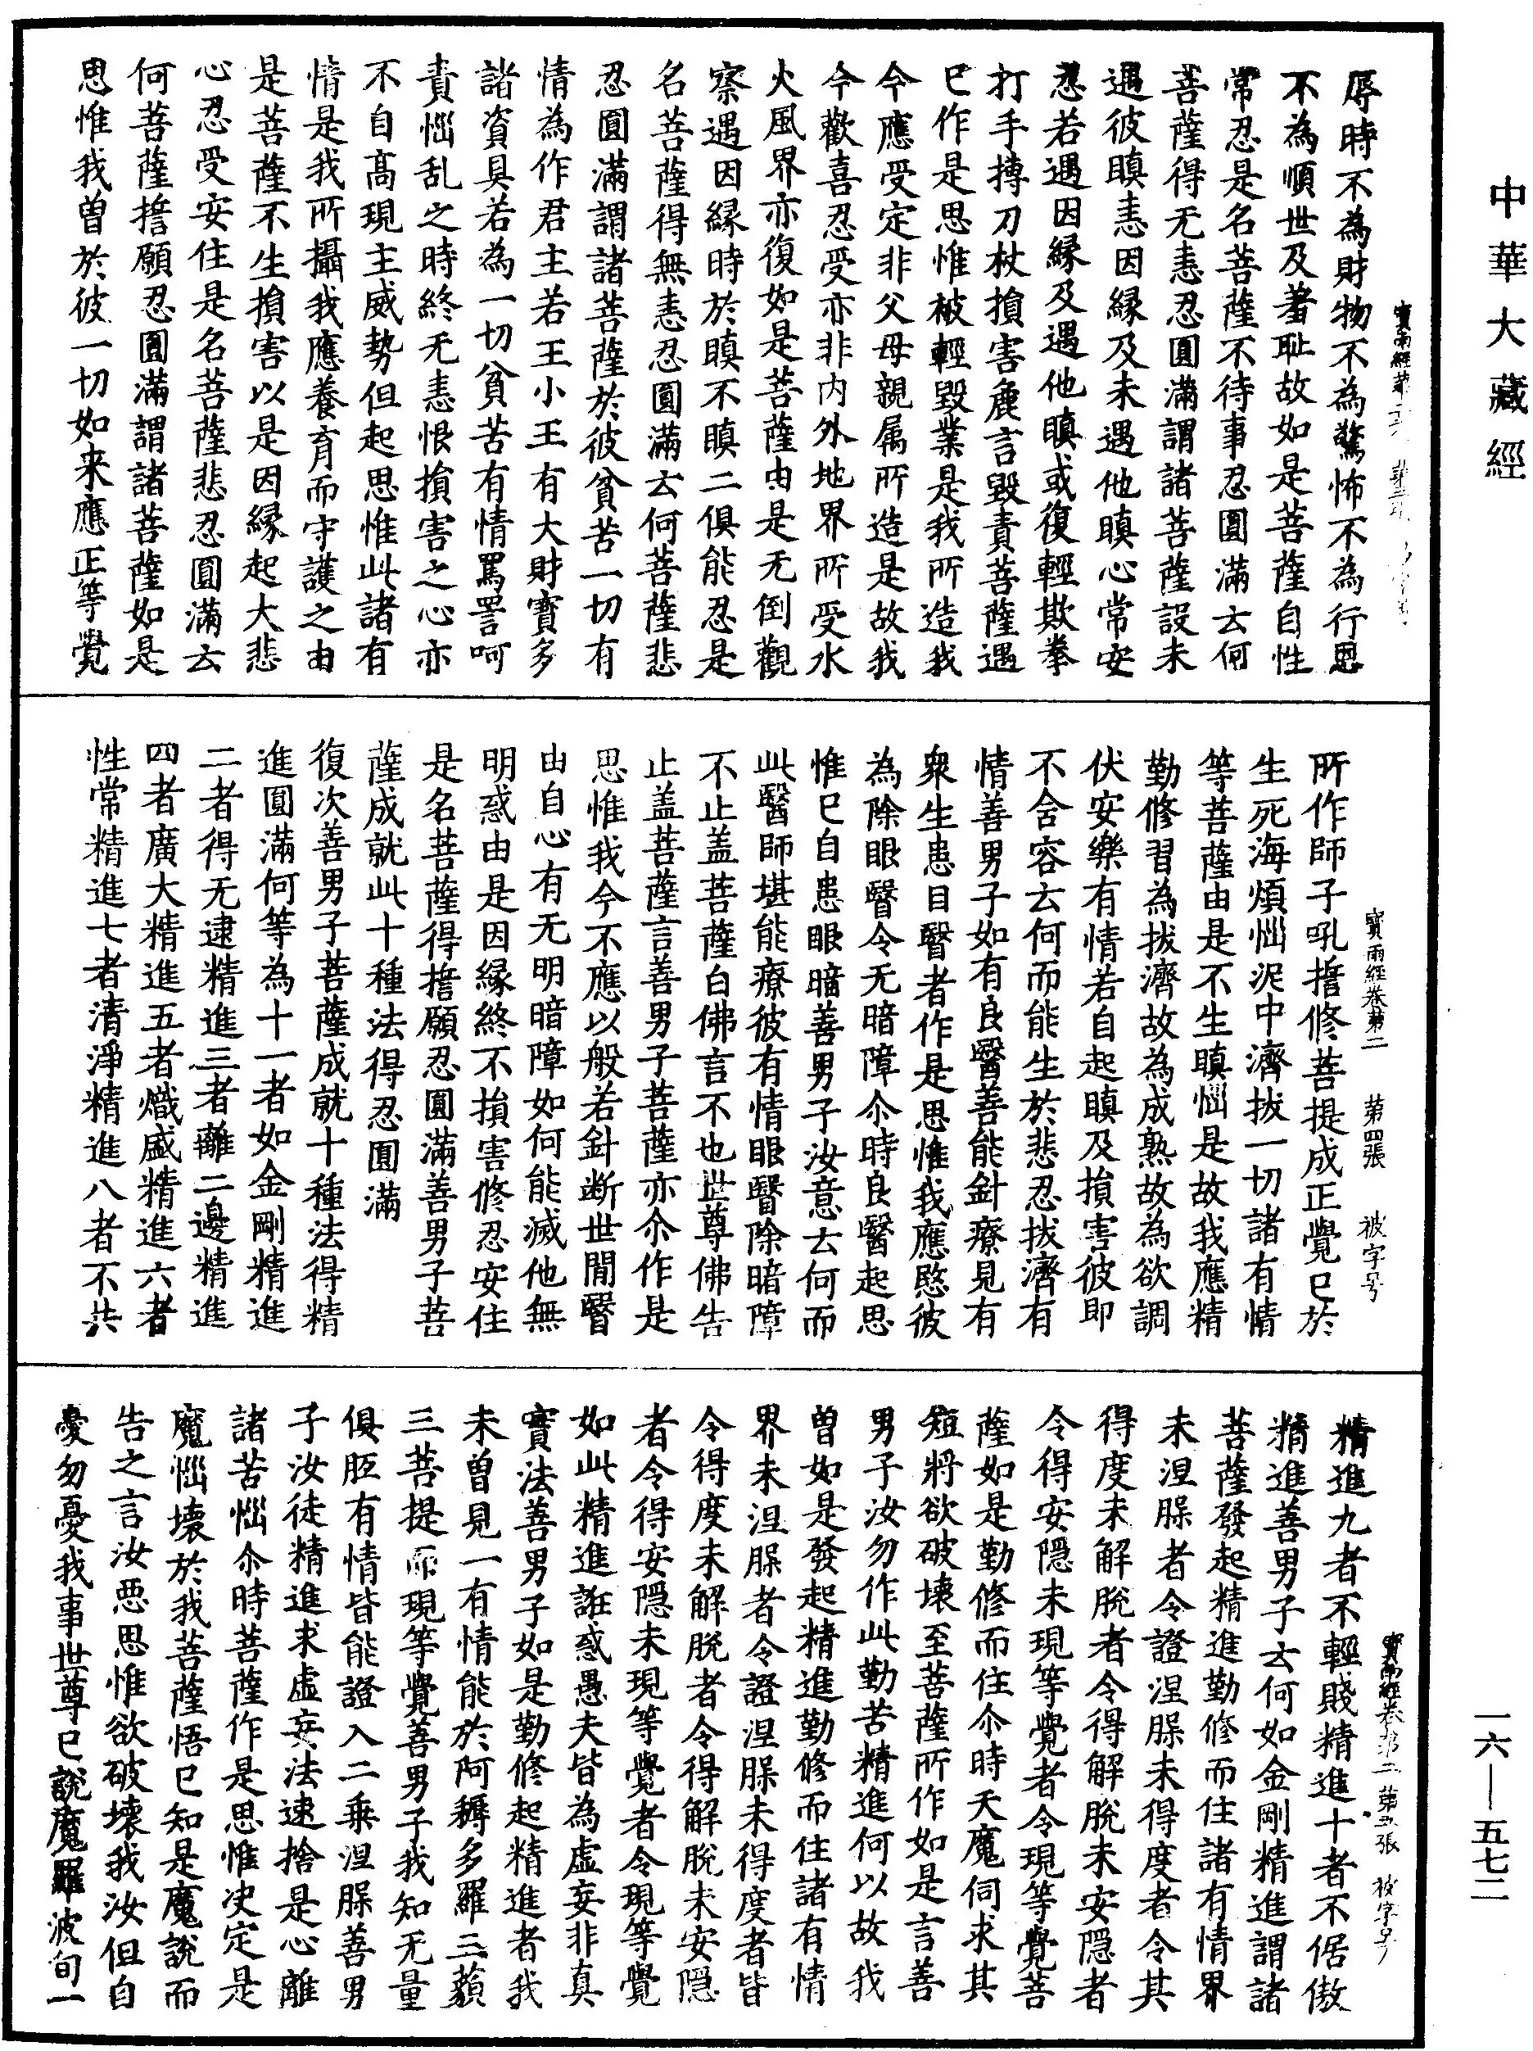 中華大藏經
辱時不為財物不為驚怖不為行恩
不為順世及著恥故如是菩薩自性
常忍是名菩薩不待事忍圓滿云何
菩薩得无恚忍圓滿謂諸菩薩設未
遇彼瞋恚因緣及未遇他瞋心常安
忍若遇因緣及遇他瞋或復輕欺拳
打手搏刀杖損害麁言毀責菩薩遇
已作是思惟被輕毀業是我所造我
今應受定非父母親属所造是故我
今歡喜忍受亦非內外地界所受水
火風界亦復如是菩薩由是无倒觀
察遇因緣時於瞋不瞋二俱能忍是
名菩薩得無恚忍圓滿云何菩薩悲
忍圓滿謂諸菩薩於彼貧苦一切有
情為作君主若王小王有大財寶多
諸資具若為一切貧苦有情罵詈呵
責惱乱之時終无恚恨損害之心亦
不自高現主威勢但起思惟此諸有
情是我所攝我應養育而守護之由
是菩薩不生損害以是因緣起大悲
心忍受安住是名菩薩悲忍圓滿云
何菩薩擔願忍圓滿謂諸菩薩如是
思惟我曾於彼一切如来應正等覺
寶雨經卷第二 第四張 被字号
所作師子吼擔修菩提成正覺已於
生死海煩惱泥中濟拔一切諸有情
等菩薩由是不生瞋惱是故我應精
勤修習為拔濟故為成熟故為欲調
伏安樂有情若自起瞋及損害彼即
不舍容云何而能生於悲忍拔濟有
情善男子如有良醫善能針療見有
衆生患目瞖者作是思惟我應愍彼
為除眼瞖令无暗障尒時良醫起思
惟已自患眼暗善男子汝意云何而
此醫師堪能療彼有情眼瞖除暗障
不止盖菩薩白佛言不也世尊佛告
止盖菩薩言善男子菩薩亦尒作是
思惟我今不應以般若針断世間瞖
由自心有无明暗障如何能滅他無
明惑由是因緣終不損害修忍安住
是名菩薩得擔願忍圓滿善男子菩
薩成就此十種法得忍圓滿
復次善男子菩薩成就十種法得精
進圓滿何等為十一者如金剛精進
二者得无逮精進三者離二邊精進
四者廣大精進五者熾盛精進六者
性常精進七者清淨精進八者不共
寶雨經卷第二 第五張 被字号
精進九者不輕賤精進十者不倨傲
精進善男子云何如金剛精進謂諸
菩薩發起精進勤修而住諸有情界
未涅脲者令證涅脲未得度者令其
得度未解脫者令得解脫未安隱者
令得安隱未現等覺者令現等覺菩
薩如是勤修而住尒時天魔伺求其
短將欲破壞至菩薩所作如是言善
男子汝勿作此勤苦精進何以故我
曾如是發起精進勤修而住諸有情
界未涅脲者令證涅脲未得度者皆
令得度未解脫者令得解脫未安隱
者令得安隱未現等覺者令現等覺
如此精進誑惑愚夫皆為虛妄非真
實法善男子如是勤修起精進者我
未曾見一有情能於阿耨多羅三藐
三菩提而現等覺善男子我知无量
俱胝有情皆能證入二乘涅脲善男
子汝徒精進求虛妄法速捨是心離
諸苦惱尒時菩薩作是思惟决定是
魔惱壞於我菩薩悟已知是魔說而
告之言汝惡思惟欲破壞我汝但自
憂勿憂我事世尊已說魔羅波旬一
一六—五七二